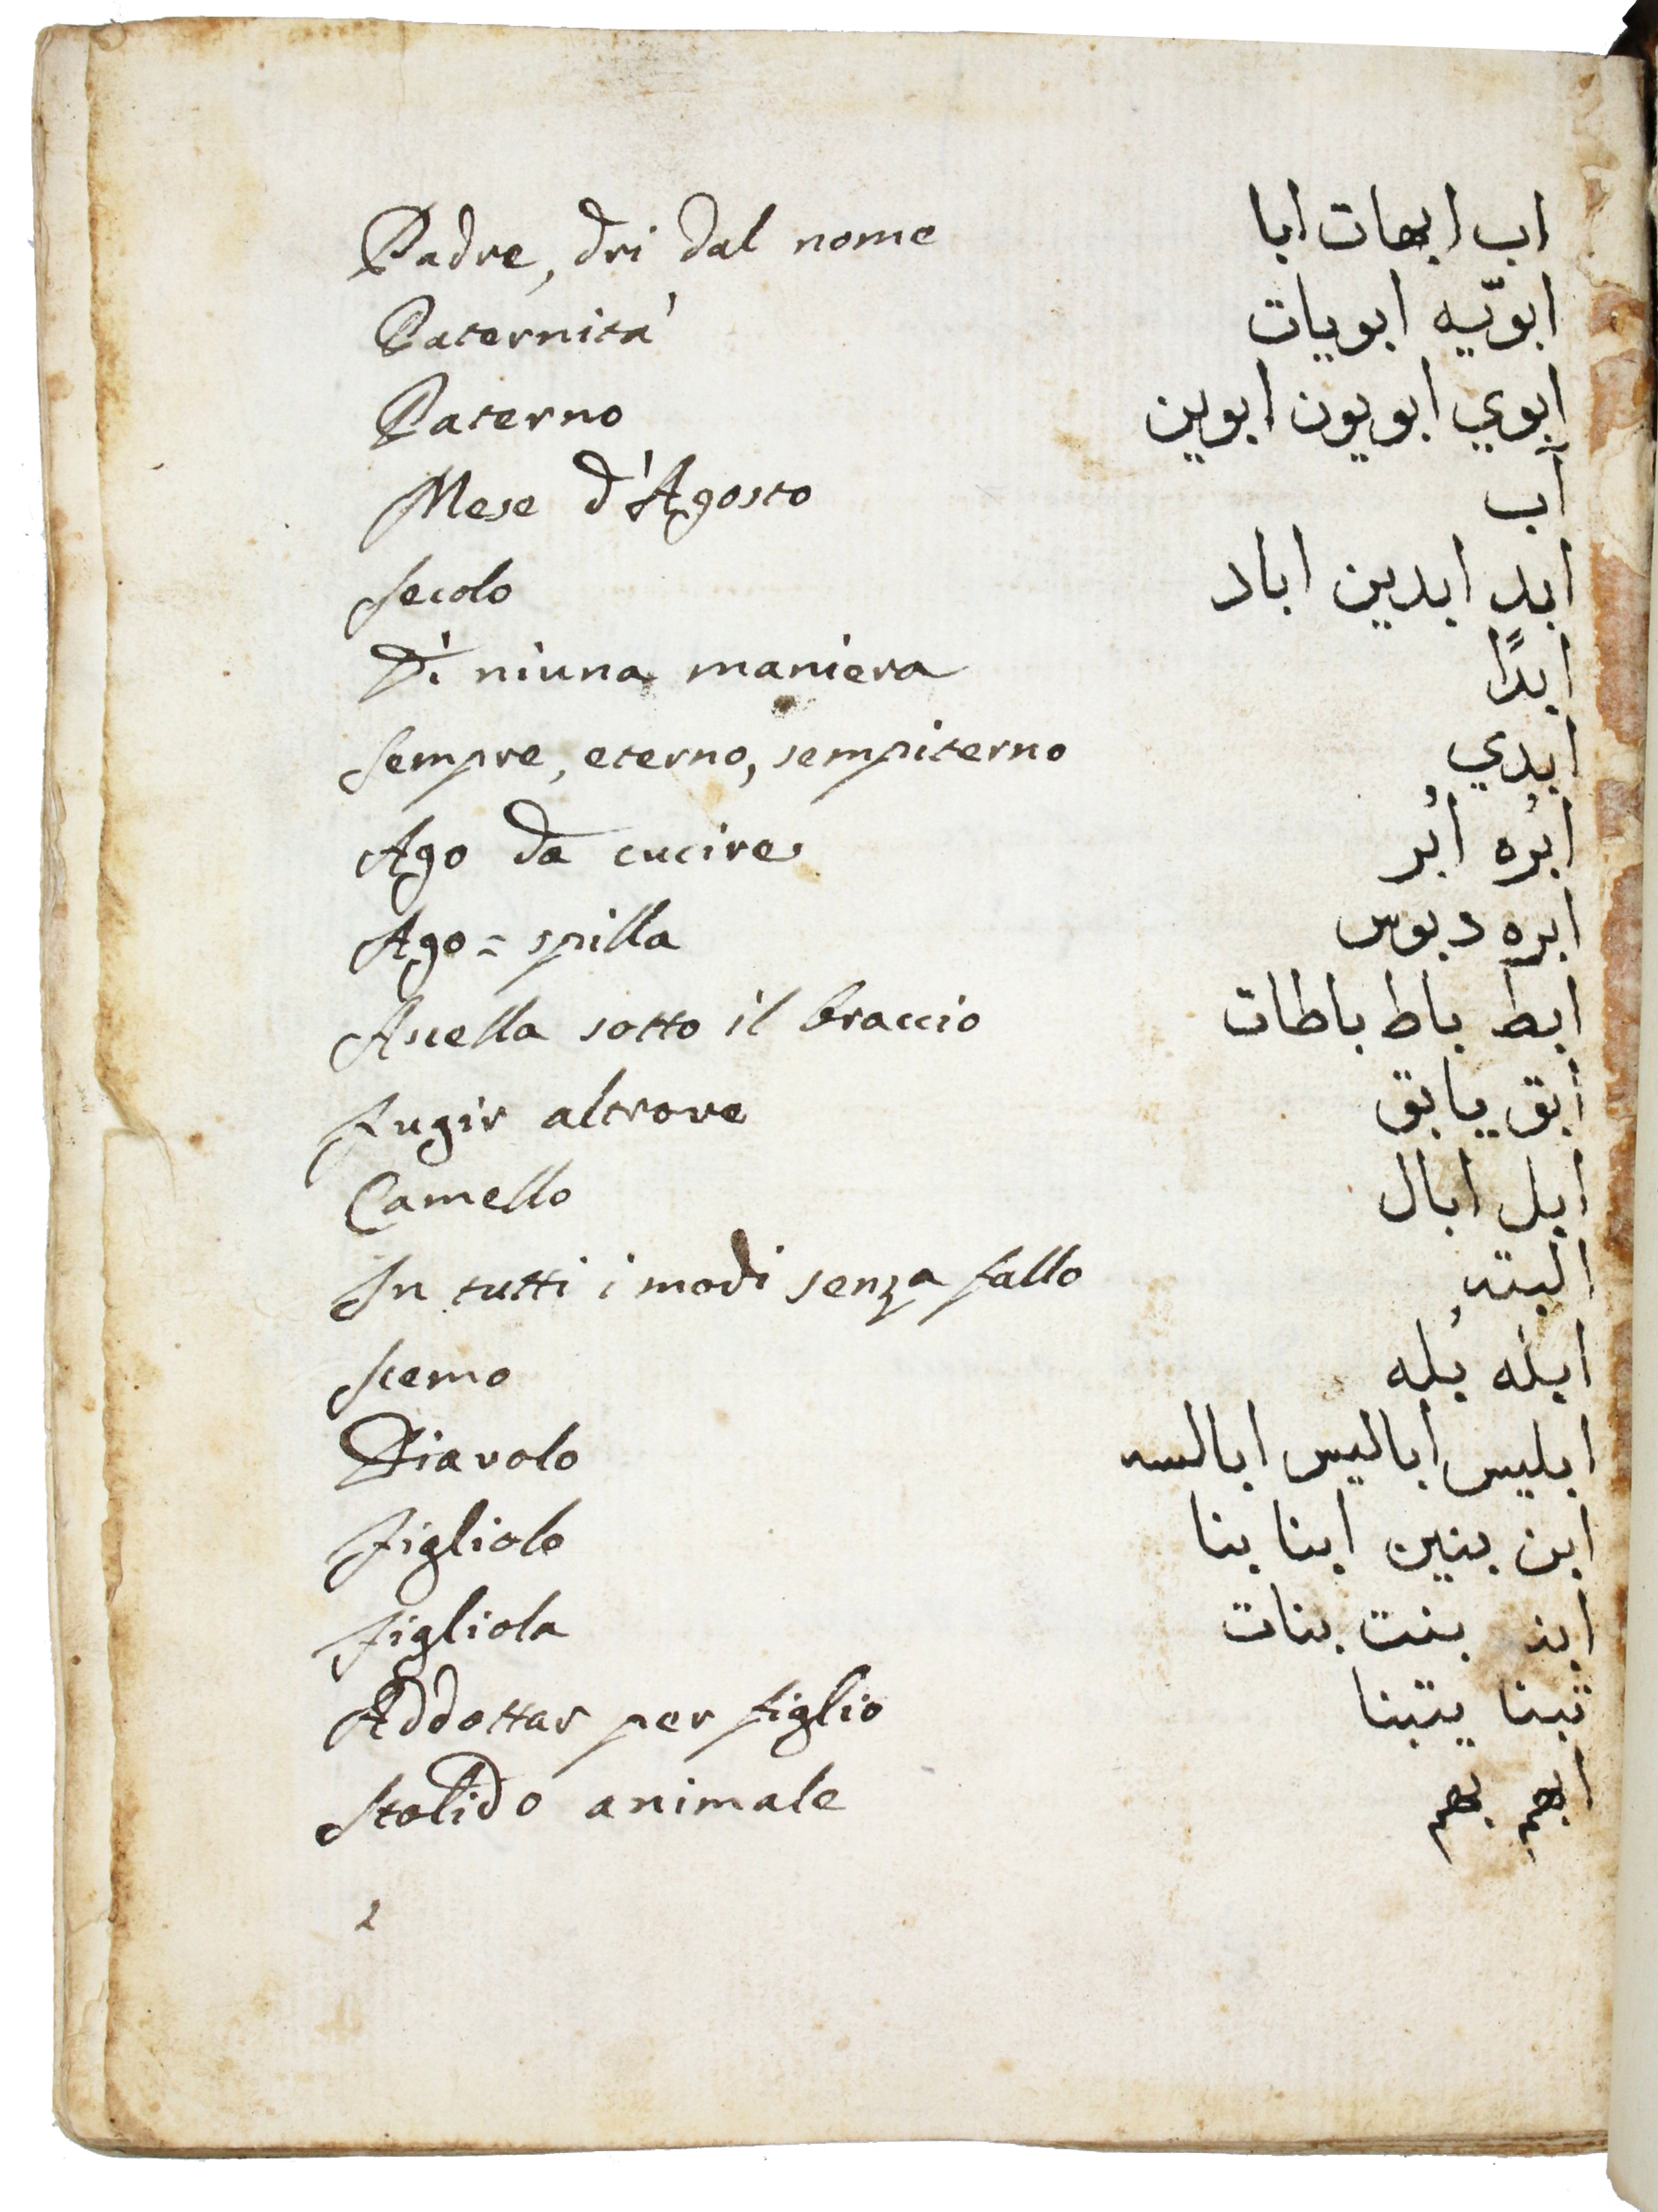 Padre, dri dal nome اب ابهات ابا
Paternità ابويّه ابويات
Paterno ابوي ابويون ابوين
Mese d'Agosto آب
Secolo ابد ابدين اباد
Di niuna maniera ابدًا
Sempre, eterno, sempiterno ابدي
Ago da cucire ابُره ابُر
Ago = spilla ابره دبوس
Ascella sotto il braccio ابط باط باطات
Fugir altrove ابق يابق
Camello ابل ابال
In tutti i modi senza fallo البته
Scemo ابله بُله
Diavolo ابليس اباليس ابالسه
Figliolo ابن بنين ابنا بنا
Figliola بنت بنات
Addottar per figlio تبنا يتبنا
Stolido animale ابهم بهم
2